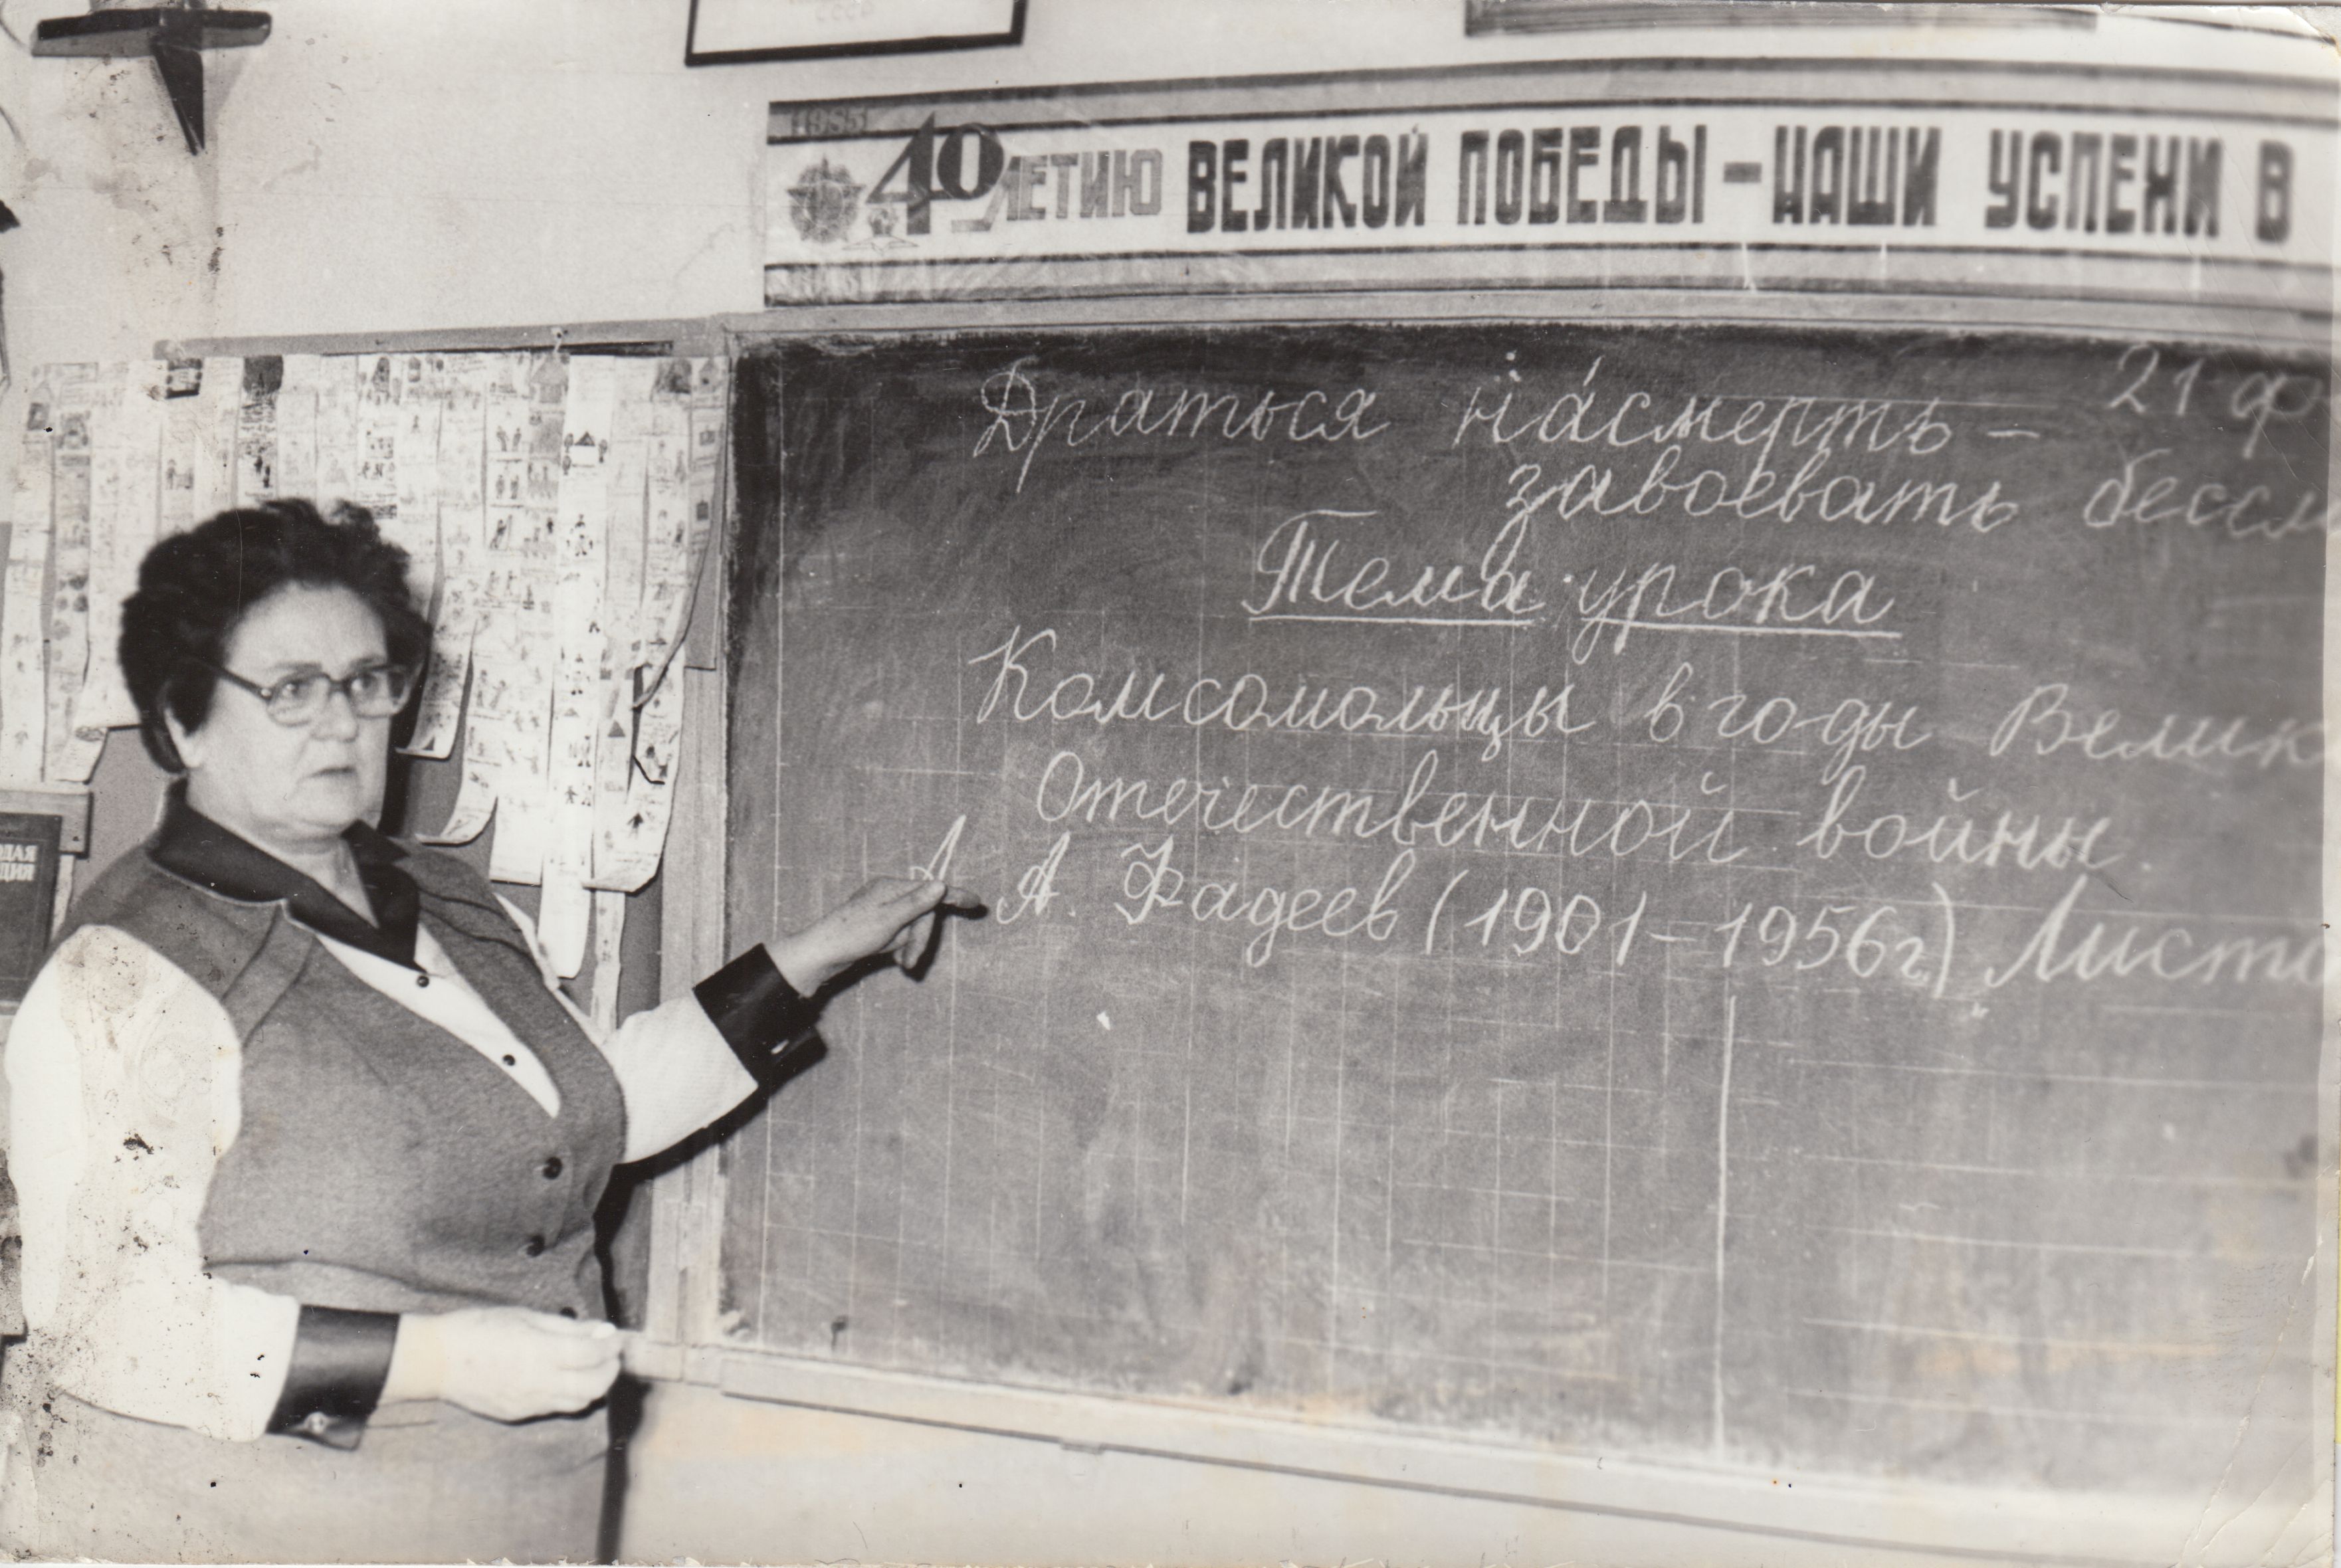 1985
40 ЛЕТИЮ ВЕЛИКОЙ ПОБЕДЫ – НАШИ УСПЕХИ В
21 ф
Драться на́смерть –
завоевать бессм
Тема урока
Комсомольцы в годы Велик
Отечественной войны.
А. А. Фадеев (1901 – 1956г.) Листо
ДАЯ
ДИЯ